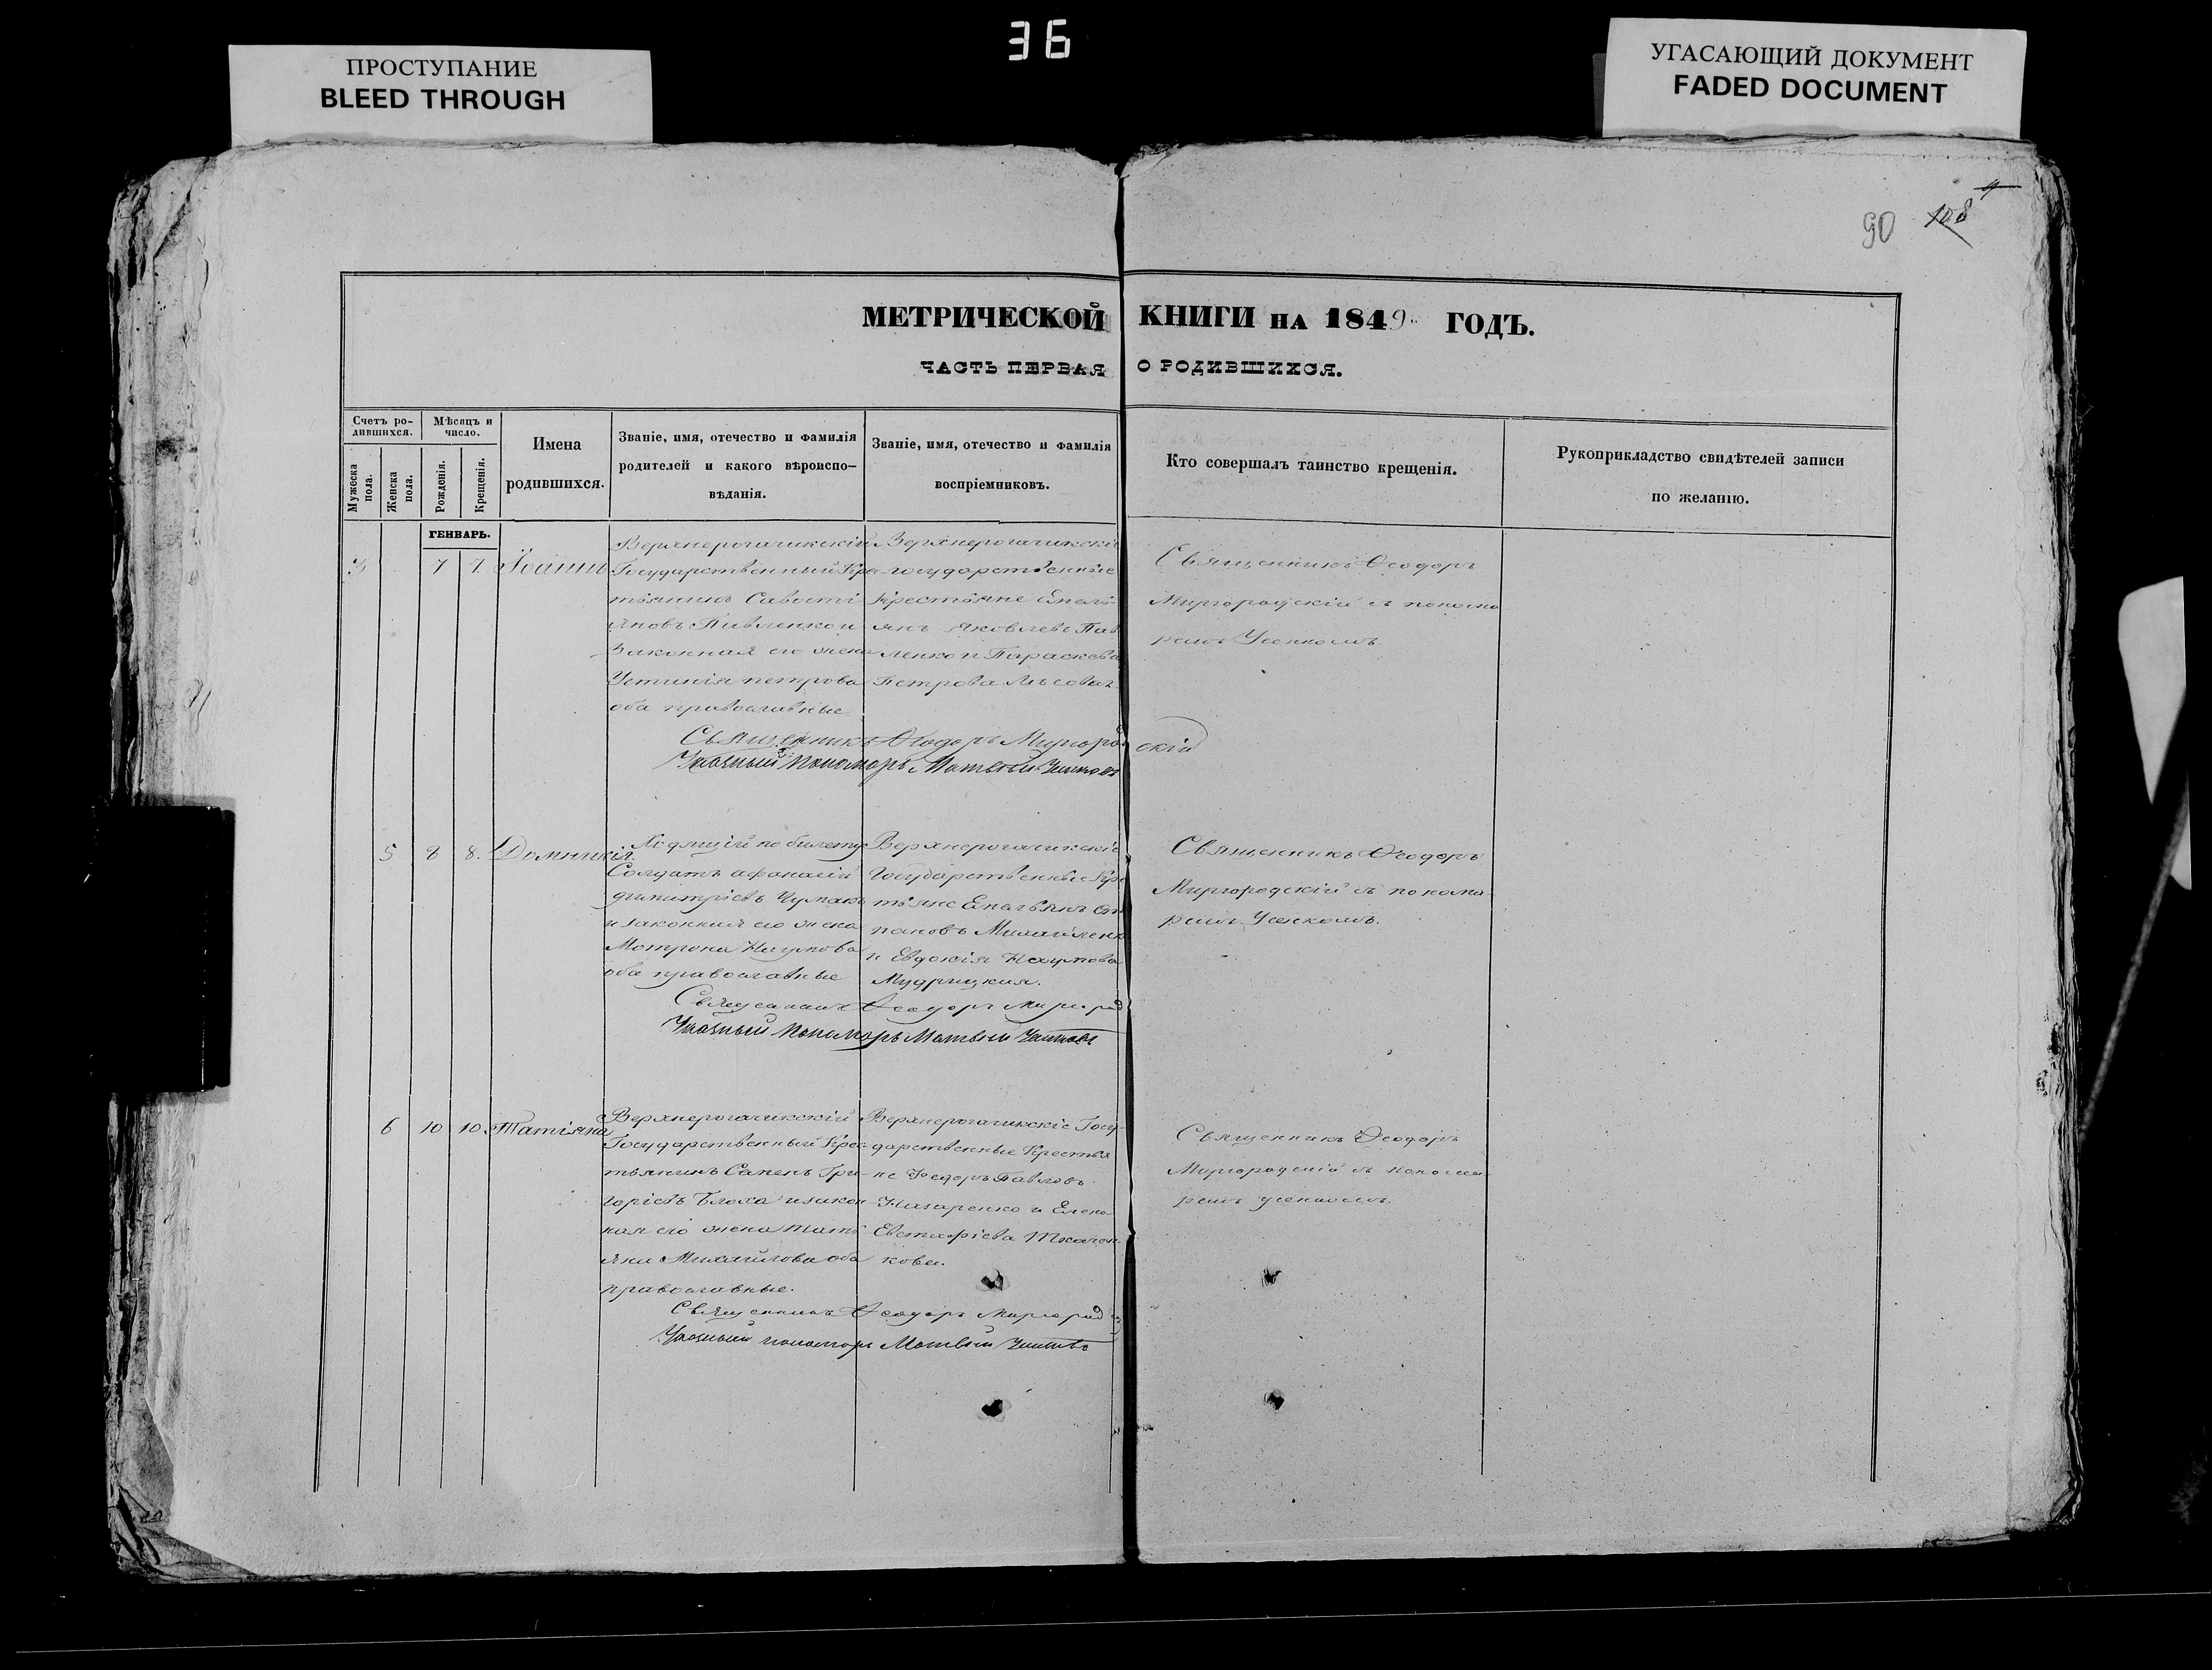 36
ПРОСТУПАНИЕ
BLEED THROUGH
УГАСАЮЩИЙ ДОКУМЕНТ
FADED DOCUMENT
90 108
МЕТРИЧЕСКОЙ КНИГИ НА 1849 ГОДЪ.
ЧАСТЬ ПЕРВАЯ О РОДИВШИХСЯ.
Счетъ ро-
дившихся.
Мужеска
пола.
Женска
пола.
Мѣсяцъ и
число.
Рожденія.
Крещенія.
Имена
родившихся.
Званіе, имя, отечество и фамилія
родителей и какого вѣроиспо-
вѣданія.
Званіе, имя, отечество и фамилія
воспріемниковъ.
Кто совершалъ таинство крещенія.
Рукоприкладство свидѣтелей записи
по желанію.
ГЕНВАРЬ.
3 7 7. Іоаннъ
Верхнерогачикскій
Государственный Крес-
тьянинъ Савасті
яновъ и
Законная его жена
Устинія петрова
оба православные
Верхнерогачикскіе
государственные
Крестьяне Емель-
янъ Яковлевъ Пав
ленко и Параскева
Петрова
Священникъ Ѳеодоръ
Миргородскій съ понома
ремъ Усенкомъ.
Священникъ Ѳеодоръ Миргородскій
Указный Пономарь Матвей
5 8 8. Домникія.
Ходящій по билету
Солдатъ афанасій
димитріевъ Чумакъ
и законная его жена
Мотрона Наумова
оба православные
Верхнерогачикскіе
Государственные Кре
тьяне Емельянъ
пановъ
и Евдокія Наумова
Мудрицкая.
Священникъ Ѳеодоръ
Миргородскій съ понома
ремъ Усенкомъ.
Священникъ Ѳеодоръ Миргород
Указный Пономарь Матвей
6 10 10. Татіяна
Верхнерогачикскій
Государственный Крес-
тьянинъ Гри-
горіевъ Блоха и закон
ная его жена Тать
яна Михайлова оба
православные.
Верхнерогачикскіе Госу-
дарственные Крестья
не Ѳеодоръ Павловъ
Назаренко и Елена
Евстафіева Ткачен-
кова.
Священникъ Ѳеодоръ
Миргородскій съ понома
ремъ усенкомъ.
Священникъ Ѳеодоръ Миргород
Указный пономарь Матвей